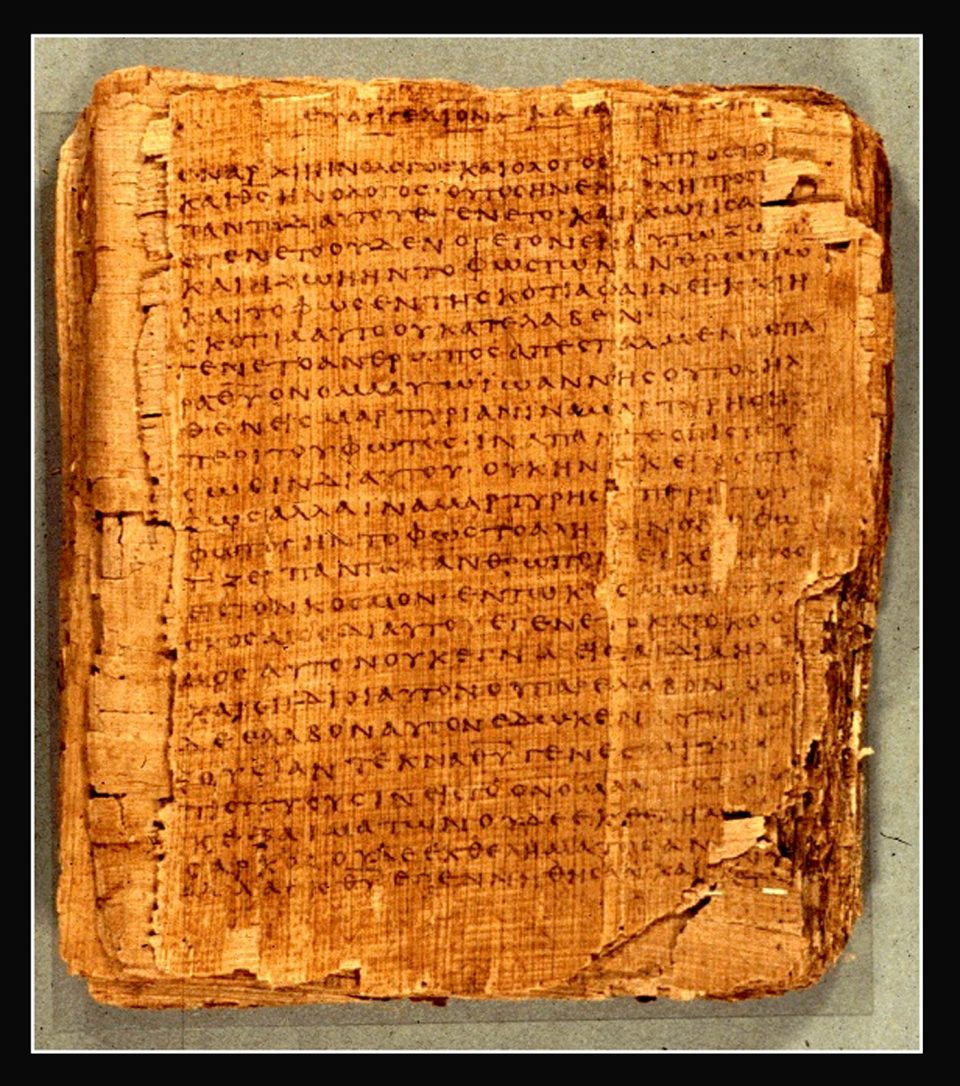 ΕΥΑΓΓΕΛΙΟΝ ΚΑΤΑ
ΕΝ ΑΡΧΗ ΗΝ Ο ΛΟΓΟϹ ΚΑΙ Ο ΛΟΓΟϹ
ΚΑΙ ΘϹ ΗΝ Ο ΛΟΓΟϹ · ΟΥΤΟϹ ΗΝ ΕΝ ΑΡΧΗ ΠΡΟϹ
ΠΑΝΤΑ ΔΙ ΑΥΤΟΥ ΕΓΕΝΕΤΟ · ΚΑΙ ΧΩΡΙϹ Α
ΕΓΕΝΕΤΟ ΟΥΔΕΝ Ο ΓΕΓΟΝΕΝ ΑΥΤΩ ΖΩ
ΚΑΙ Η ΖΩΗ ΗΝ ΤΟ ΦΩϹ ΤΩΝ ΑΝΘΡΩΠΩ
ΚΑΙ ΤΟ ΦΩϹ ΕΝ ΤΗ ϹΚΟΤΙΑ ΦΑΙΝΕΙ ΚΑΙ Η
ϹΚΟΤΙΑ ΑΥΤΟ ΟΥ ΚΑΤΕΛΑΒΕΝ ·
ΕΓΕΝΕΤΟ ΑΝΘΡΩΠΟϹ ΑΠΕϹΤΑΛΜΕΝΟϹ ΠΑ
ΡΑ ΘΥ ΟΝΟΜΑ ΑΥΤΩ ΙΩΑΝΝΗϹ ΟΥΤΟϹ ΗΛ
ΘΕΝ ΕΙϹ ΜΑΡΤΥΡΙΑΝ ΙΝΑ ΜΑΡΤΥΡΗϹΗ
ΠΕΡΙ ΤΟΥ ΦΩΤΟϹ · ΙΝΑ ΠΑΝΤΕϹ ΠΙϹΤΕΥ
ϹΩϹΙΝ ΔΙ ΑΥΤΟΥ · ΟΥΚ ΗΝ ΕΚΕΙΝΟϹ ΤΟ
ΦΩϹ ΑΛΛΑ ΙΝΑ ΜΑΡΤΥΡΗϹΗ ΠΕΡΙ ΤΟΥ
ΦΩΤΟϹ ΗΝ ΤΟ ΦΩϹ ΤΟ ΑΛΗ
ΤΙΖΕΙ ΠΑΝΤΑ ΑΝΘΡΩΠΟΝ ΕΡΧΟΜΕΝΟΝ
ΕΙϹ ΤΟΝ ΚΟϹΜΟΝ · ΕΝ ΤΩ ΚΟϹΜΩ ΗΝ
ΚΑΙ Ο ΚΟϹΜΟϹ ΔΙ ΑΥΤΟΥ ΕΓΕΝΕΤΟ ΚΑΙ Ο ΚΟϹ
ΜΟϹ ΑΥΤΟΝ ΟΥΚ ΕΓΝΩ ΕΙϹ ΤΑ ΙΔΙΑ ΗΛ
ΚΑΙ ΟΙ ΙΔΙΟΙ ΑΥΤΟΝ ΟΥ ΠΑΡΕΛΑΒΟΝ ΟϹΟΙ
ΔΕ ΕΛΑΒΟΝ ΑΥΤΟΝ ΕΔΩΚΕΝ ΑΥΤΟΙϹ
ΞΟΥϹΙΑΝ ΤΕΚΝΑ ΘΥ ΓΕΝΕϹΘΑΙ
ΠΙϹΤΕΥΟΥϹΙΝ ΕΙϹ ΤΟ ΟΝΟΜΑ
ΑΙΜΑΤΩΝ ΟΥΔΕ ΕΚ ΘΕΛΗΜΑ
ϹΑΡΚΟϹ ΟΥΔΕ ΕΚ ΘΕΛΗΜΑΤΟϹ ΑΝ
ΑΛΛ ΕΚ ΘΥ ΕΓΕΝΝΗΘΗϹΑΝ ΚΑΙ